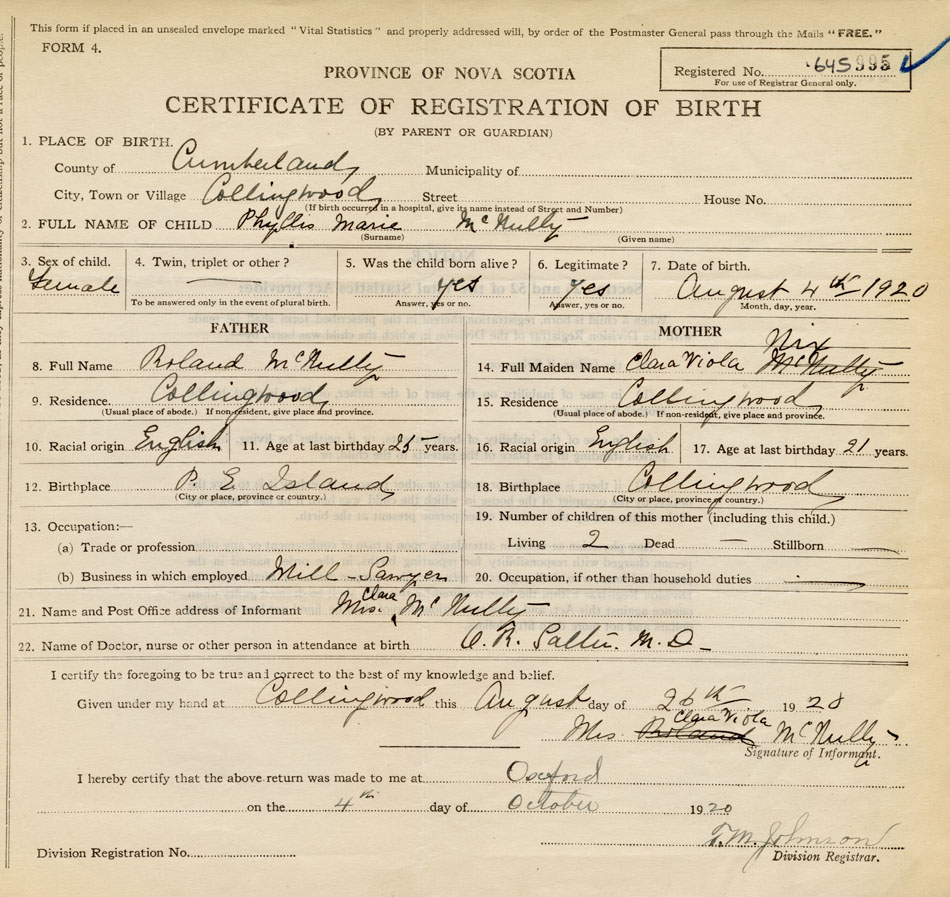 This form if placed in an unsealed envelope marked "Vital Statistics" and properly addressed will, by order of the Postmaster General pass through the Mails "FREE."
FORM 4.
PROVINCE OF NOVA SCOTIA
Registered No. 645995
For use of Registrar General only.
CERTIFICATE OF REGISTRATION OF BIRTH
(BY PARENT OR GUARDIAN)
1. PLACE OF BIRTH.
County of Cumberland Municipality of
City, Town or Village Collingwood Street House No.
(If birth occurred in a hospital, give its name instead of Street and Number)
2. FULL NAME OF CHILD Phyllis Marie McNully
(Surname) (Given name)
3. Sex of child. 4. Twin, triplet or other? 5. Was the child born alive? 6. Legitimate? 7. Date of birth.
Female — yes yes August 4th 1920
To be answered only in the event of plural birth. Answer, yes or no. Answer, yes or no. Month, day, year.
FATHER MOTHER
8. Full Name Roland McNully 14. Full Maiden Name Clara Viola McNully Nix
9. Residence. Collingwood 15. Residence Collingwood
(Usual place of abode.) If non-resident, give place and province. (Usual place of abode.) If non-resident, give place and province.
10. Racial origin English 11. Age at last birthday 25 years. 16. Racial origin English 17. Age at last birthday 21 years.
12. Birthplace P. E. Island 18. Birthplace Collingwood
(City or place, province or country.) (City or place, province or country.)
13. Occupation:— 19. Number of children of this mother (including this child.)
(a) Trade or profession Living 2 Dead — Stillborn —
(b) Business in which employed Mill - Sawyer 20. Occupation, if other than household duties —
21. Name and Post Office address of Informant Mrs. Clara McNully
22. Name of Doctor, nurse or other person in attendance at birth R. M. D.
I certify the foregoing to be true and correct to the best of my knowledge and belief.
Given under my hand at Collingwood this August day of 26th 1920
Mrs. Roland Clara Viola McNully
Signature of Informant.
I hereby certify that the above return was made to me at Oxford
on the 4th day of October 1920
T. M. Johnson
Division Registration No. Division Registrar.